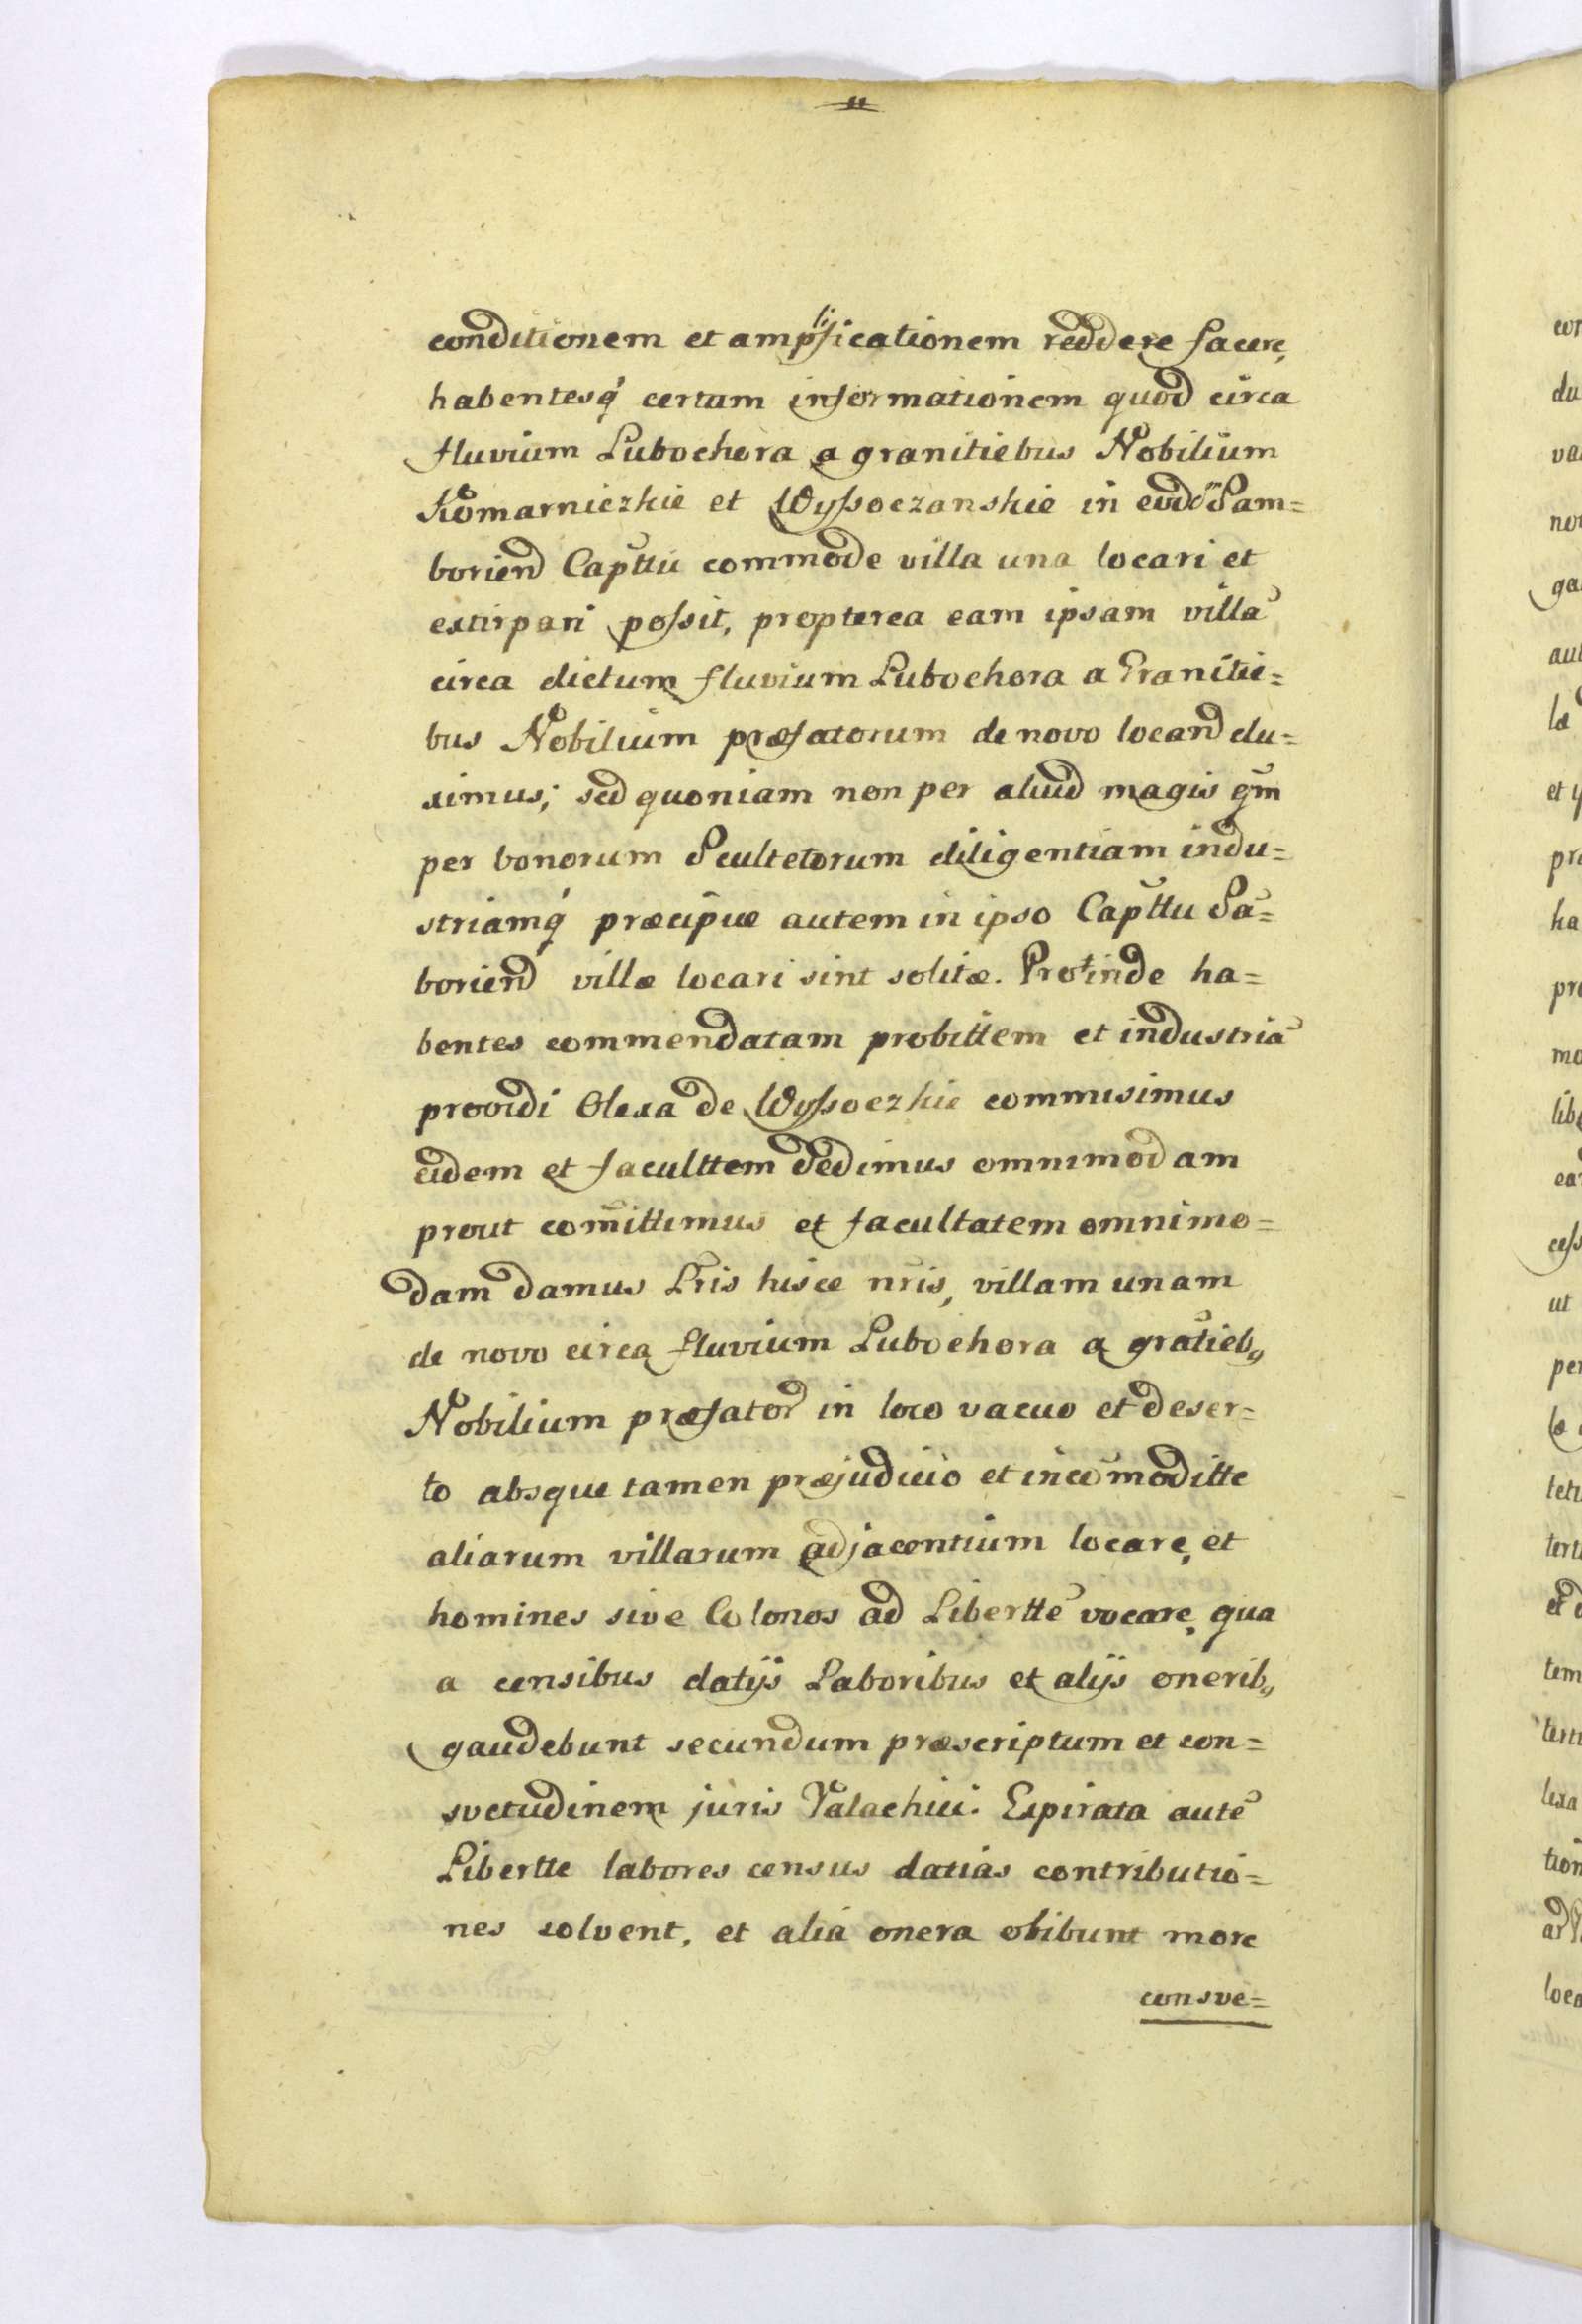 conditionem et amplificationem reddere facere,
habentesq́ certam informationem quod circa
fluvium Lubochora a granitiebus Nobilium
Komarniczkie et Wyſsoczanskie in eod̃ Sam=
boriend Capttu commode villa una locari et
extirpari poſsit, propterea eam ipsam villã
circa dictum fluvium Lubochora a Granitie=
bus Nobilium præfatorum de novo locand du=
ximus; sed quoniam non per aliud magis qm̃
per bonorum Scultetorum diligentiam indu=
striamq́ præcipue autem in ipso Capttu Sã=
boriend villæ locari sint solitæ. Protinde ha=
bentes commendatam probittem et industriã
providi Olexa de Wyſsoczkie commisimus
eidem et faculttem dedimus omnimodam
prout com̃ittimus et facultatem omnimo=
dam damus Lr̃is hisce nr̃is, villam unam
de novo circa fluvium Lubochora a gratieb,,
Nobilium præfator in loco vacuo et deser=
to absque tamen præjudicio et incõmoditte
aliarum villarum adjacentium locare, et
homines sive Colonos ad Liberttẽ vocare, qua
a censibus datijs Laboribus et alijs onerib,,
gaudebunt secundum præscriptum et con=
svetudinem juris Valachici. Expirata autẽ
Libertte labores census datias contributio=
nes solvent, et alia onera obibunt more
consve=